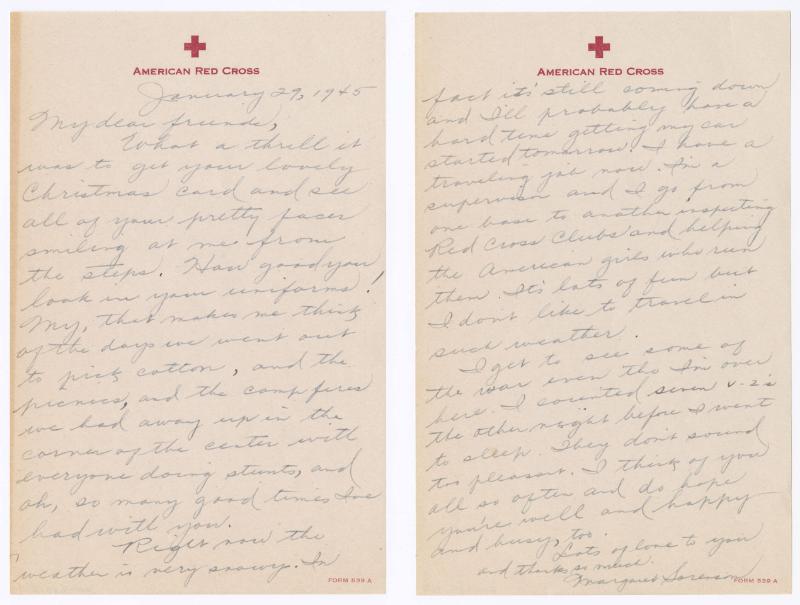 AMERICAN RED CROSS
January 29, 1945
My dear friends,
What a thrill it
was to get your lovely
Christmas card and see
all of your pretty faces
smiling at me from
the steps. How good you
look in your uniforms!
My, that makes me think
of the days we went out
to pick cotton, and the
picnics, and the camp fires
we had away up in the
corner of the center with
everyone doing stunts, and
oh, so many good times I've
had with you.
Right now the
weather is very snowy. In
FORM 539 A
AMERICAN RED CROSS
fact it's still coming down
and I'll probably have a
hard time getting my car
started tomorrow. I have a
traveling job now. I'm a
supervisor and I go from
one base to another inspecting
Red Cross Clubs and helping
the American girls who run
them. It's lots of fun but
I don't like to travel in
such weather.
I get to see some of
the war even tho I'm over
here. I counted seven V-2's
the other night before I went
to sleep. They don't sound
too pleasant. I think of you
all so often and do hope
you're well and happy
and busy, too.
Lots of love to you
and thanks so much.
Margaret Sorenson
FORM 539 A